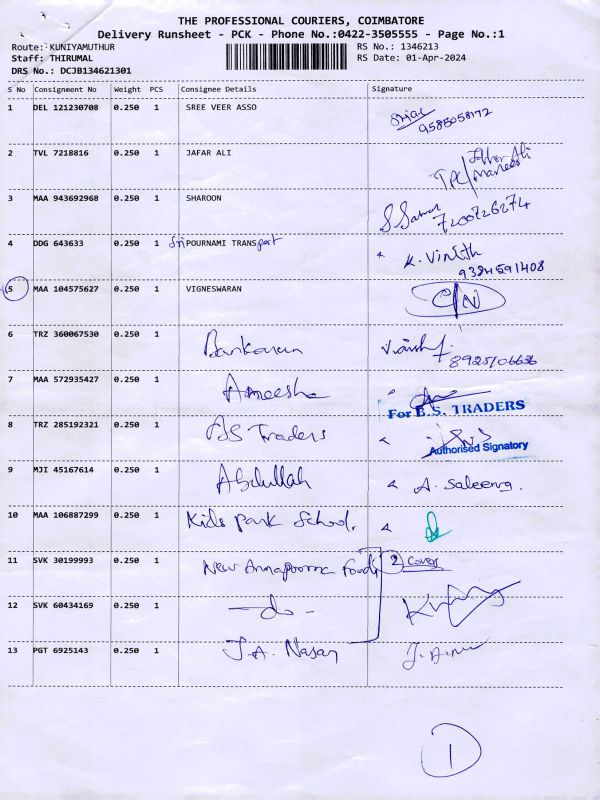 THE PROFESSIONAL COURIERS, COIMBATORE
Delivery Runsheet - PCK - Phone No.:0422-3505555 - Page No.:1
Route: KUNIYAMUTHUR RS No.: 1346213
Staff: THIRUMAL RS Date: 01-Apr-2024
DRS No.: DCJB134621301
S No Consignment No Weight PCS Consignee Details Signature
1 DEL 121230708 0.250 1 SREE VEER ASSO
9585058172
2 TVL 7218816 0.250 1 JAFAR ALI
3 MAA 943692968 0.250 1 SHAROON
7200726274
4 DDG 643633 0.250 1 Sri POURNAMI TRANSport K. Vinith
9384591408
5 MAA 104575627 0.250 1 VIGNESWARAN
6 TRZ 360067530 0.250 1
8925106636
7 MAA 572935427 0.250 1 Ameesha
For B.S. TRADERS
8 TRZ 285192321 0.250 1 BS Traders
Authorised Signatory
9 MJI 45167614 0.250 1 Abdullah A. Saleena.
10 MAA 106887299 0.250 1 Kids Park School.
11 SVK 30199993 0.250 1 New Annapoorna Foods 2 Cover
12 SVK 60434169 0.250 1 - do -
13 PGT 6925143 0.250 1 J.A. Nasar
1